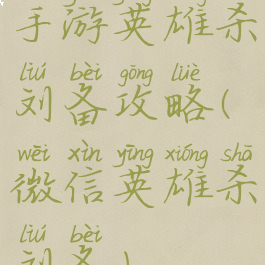 手游英雄杀
liú bèi gōng lüè
刘备攻略(
wēi xìn yīng xióng shā
微信英雄杀
liú bèi
刘备)